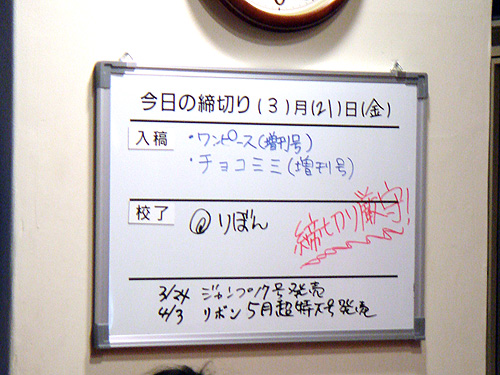 今日の締切り(3)月(21)日(金)
入稿
・ワンピース(増刊号)
・チョコミミ(増刊号)
校了
@りぼん
締切り厳守!
3/24 ジャンプ17号発売
4/3 リボン5月超特大号発売